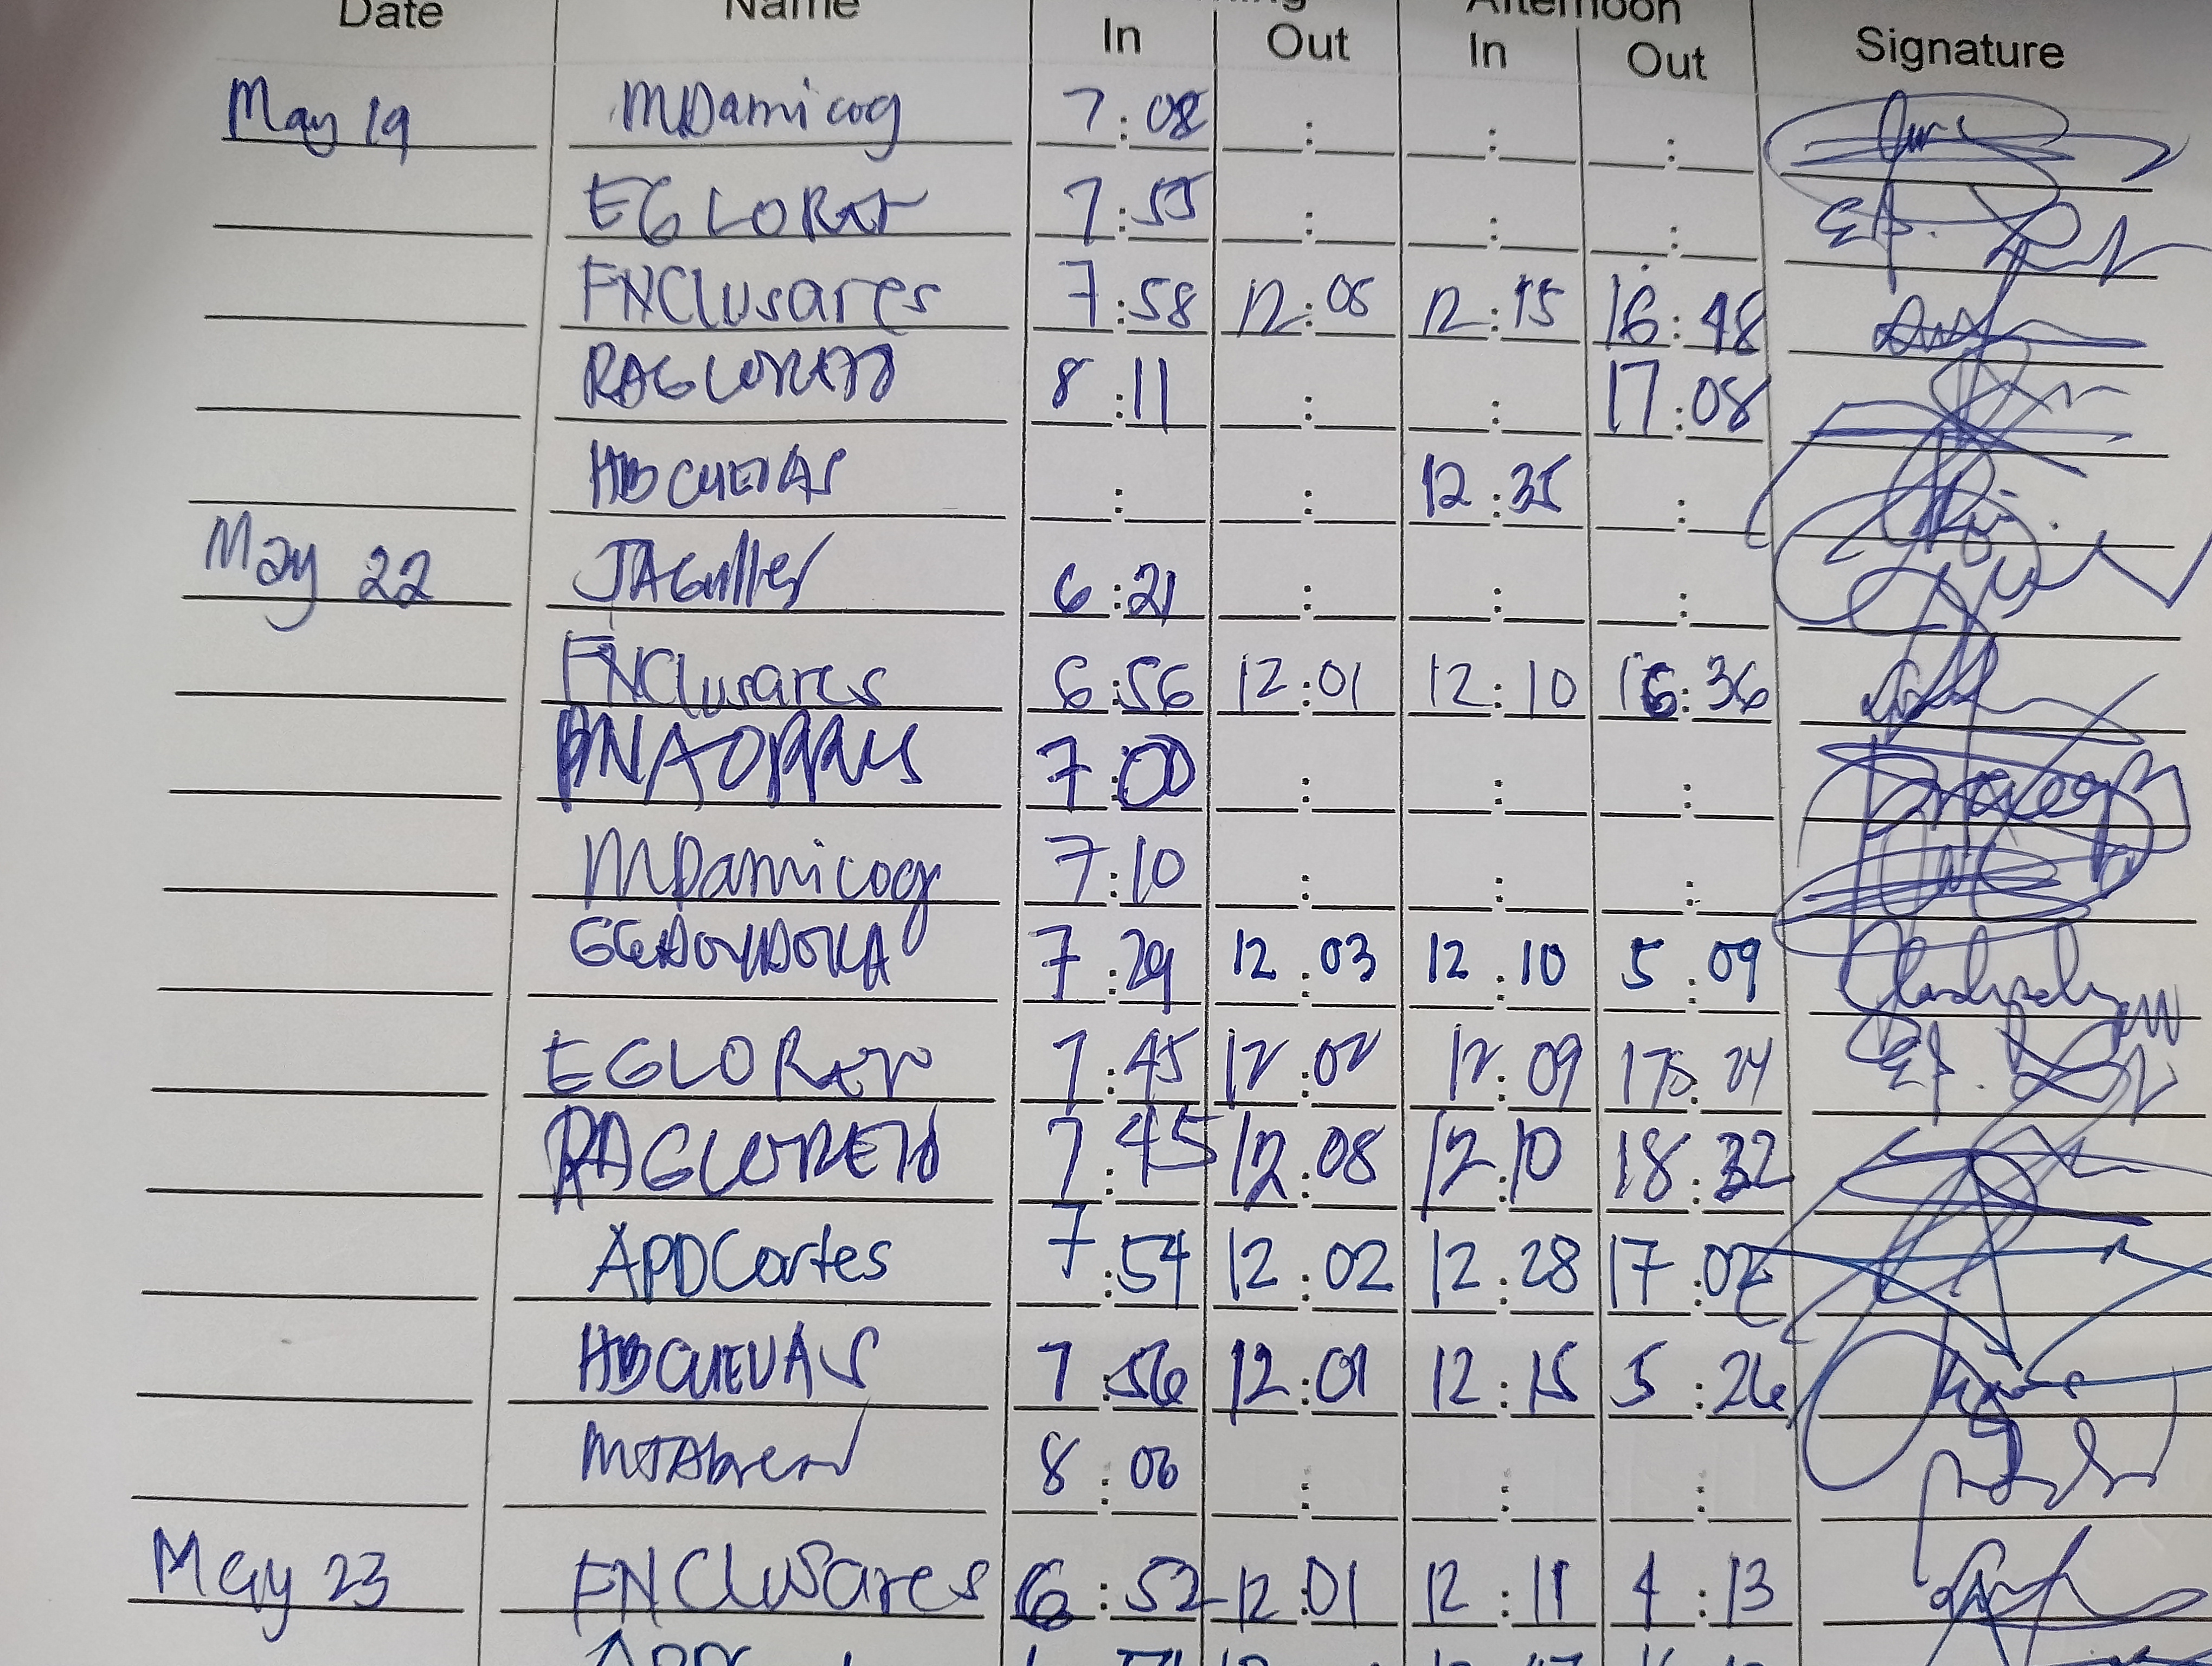 Date Name Afternoon
In Out In Out Signature
May 19 MDamicog 7:08
EGLORETO 7:55
FNClusares 7:58 12:05 12:15 16:48
RAGLORETO 8:11 17:08
HBCUEVAS 12:35
May 22 JAGuller 6:21
FNClusares 6:56 12:01 12:10 16:36
7:00
MDamicog 7:10
7:29 12:03 12:10 5:09
EGLORETO 7:45 12:02 12:09 17:24
RAGLORETO 7:45 12:08 12:10 18:32
APDCortes 7:54 12:02 12:28 17:02
HBCUEVAS 7:56 12:01 12:15 5:26
8:00
May 23 FNClusares 6:52 12:01 12:11 4:13